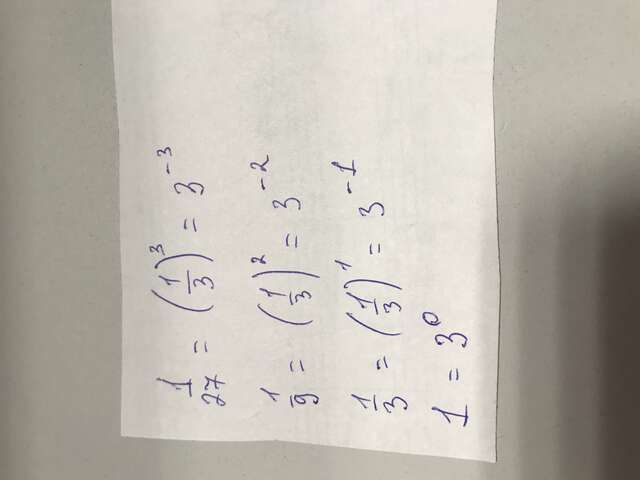 1/27 = (1/3)³ = 3⁻³
1/9 = (1/3)² = 3⁻²
1/3 = (1/3)¹ = 3⁻¹
1 = 3⁰